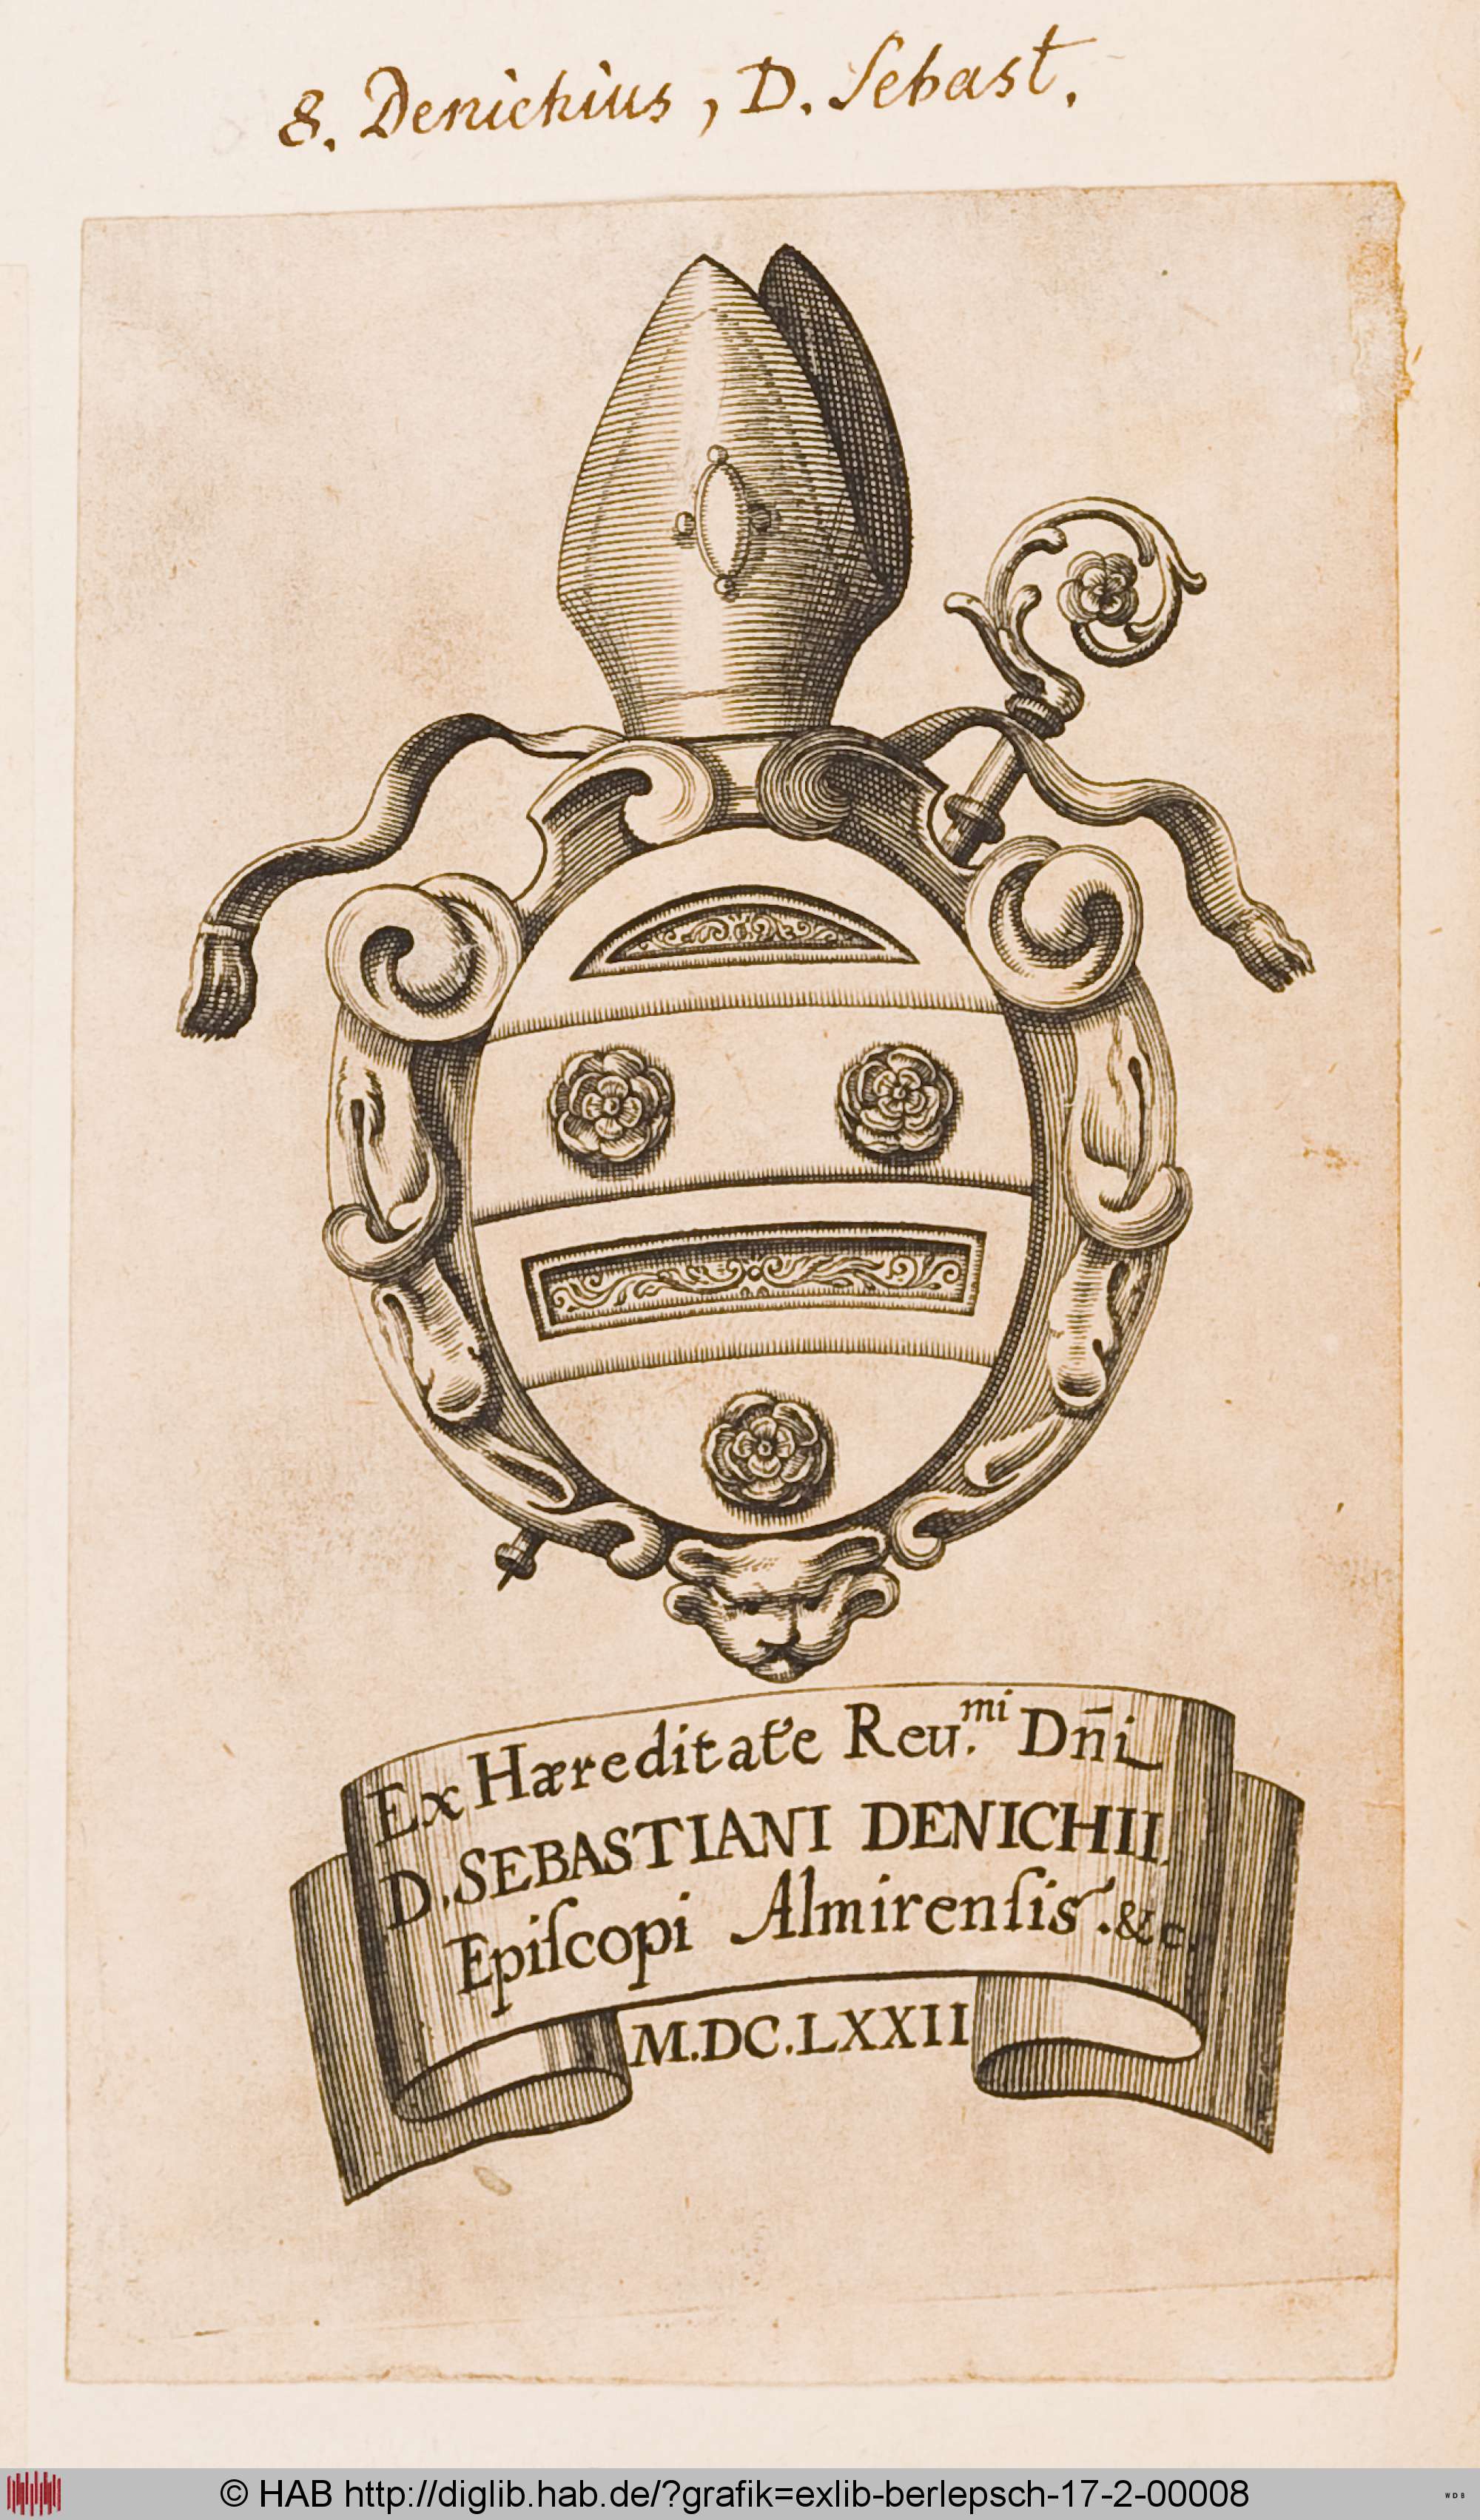 8. Denichius, D. Sebast.
Ex Hæreditate Reu.mi Dn̄i
D. SEBASTIANI DENICHII.
Epiſcopi Almirenſis. &c.
M.DC.LXXII
© HAB http://diglib.hab.de/?grafik=exlib-berlepsch-17-2-00008
WDB